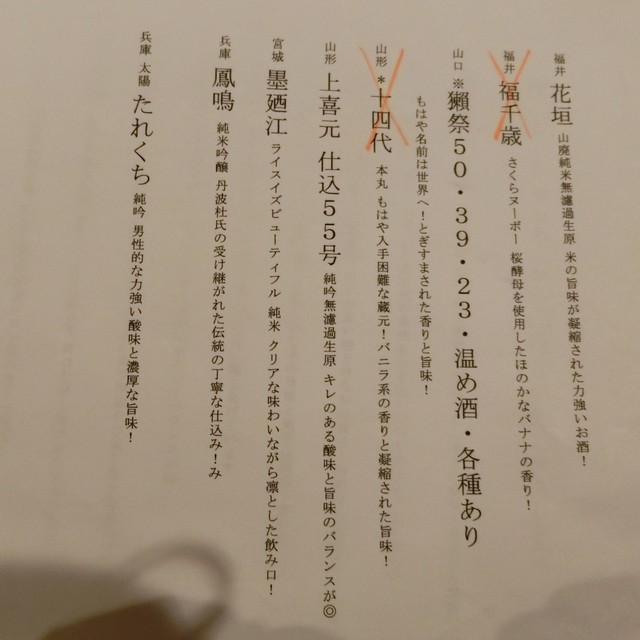 福井 花垣 山廃純米無濾過生原 米の旨味が凝縮された力強いお酒!
福井 福千歳 さくらヌーボー 桜酵母を使用したほのかなバナナの香り!
山口 ※獺祭50・39・23・温め酒・各種あり
もはや名前は世界へ!とぎすまされた香りと旨味!
山形 *十四代 本丸 もはや入手困難な蔵元!バニラ系の香りと凝縮された旨味!
山形 上喜元 仕込55号 純吟無濾過生原 キレのある酸味と旨味のバランスが◎
宮城 墨廼江 ライスイズビューティフル 純米 クリアな味わいながら凛とした飲み口!
兵庫 鳳鳴 純米吟醸 丹波杜氏の受け継がれた伝統の丁寧な仕込み!み
兵庫 太陽 たれくち 純吟 男性的な力強い酸味と濃厚な旨味!